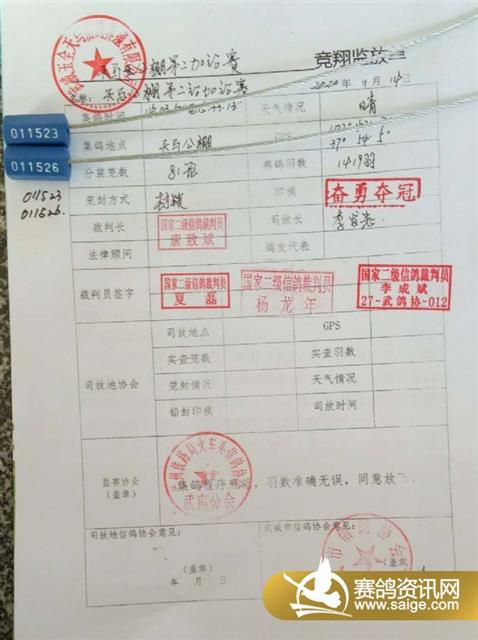 竞翔监放单
天马公棚第二加站赛
2020年9月14日
集鸽时间 天气情况 晴
011523
011526
集鸽地点 天马公棚 GPS 37° 54′ 5″
分装笼数 81 赛鸽羽数 1419羽
011523
011526.
笼封方式 封鐰 印模 奋勇夺冠
裁判长 国家二级信鸽裁判员 唐致斌 司放长
法律顾问 鸽友代表
裁判员签字 国家二级信鸽裁判员 夏磊 国家二级信鸽裁判员 杨龙年 国家二级信鸽裁判员 李成斌 27-武鸽协-012
司放地点 GPS
实查笼数 实查羽数
司放地协会
笼封情况 天气情况
铅封印模 司放时间
监赛协会
(盖章)
集鸽程序规范,羽数准确无误,同意放飞
武南分会
司放地信鸽协会意见: 武威市信鸽协会意见:
(盖章) (盖章)
年 月 日
赛鸽资讯网
www.saige.com